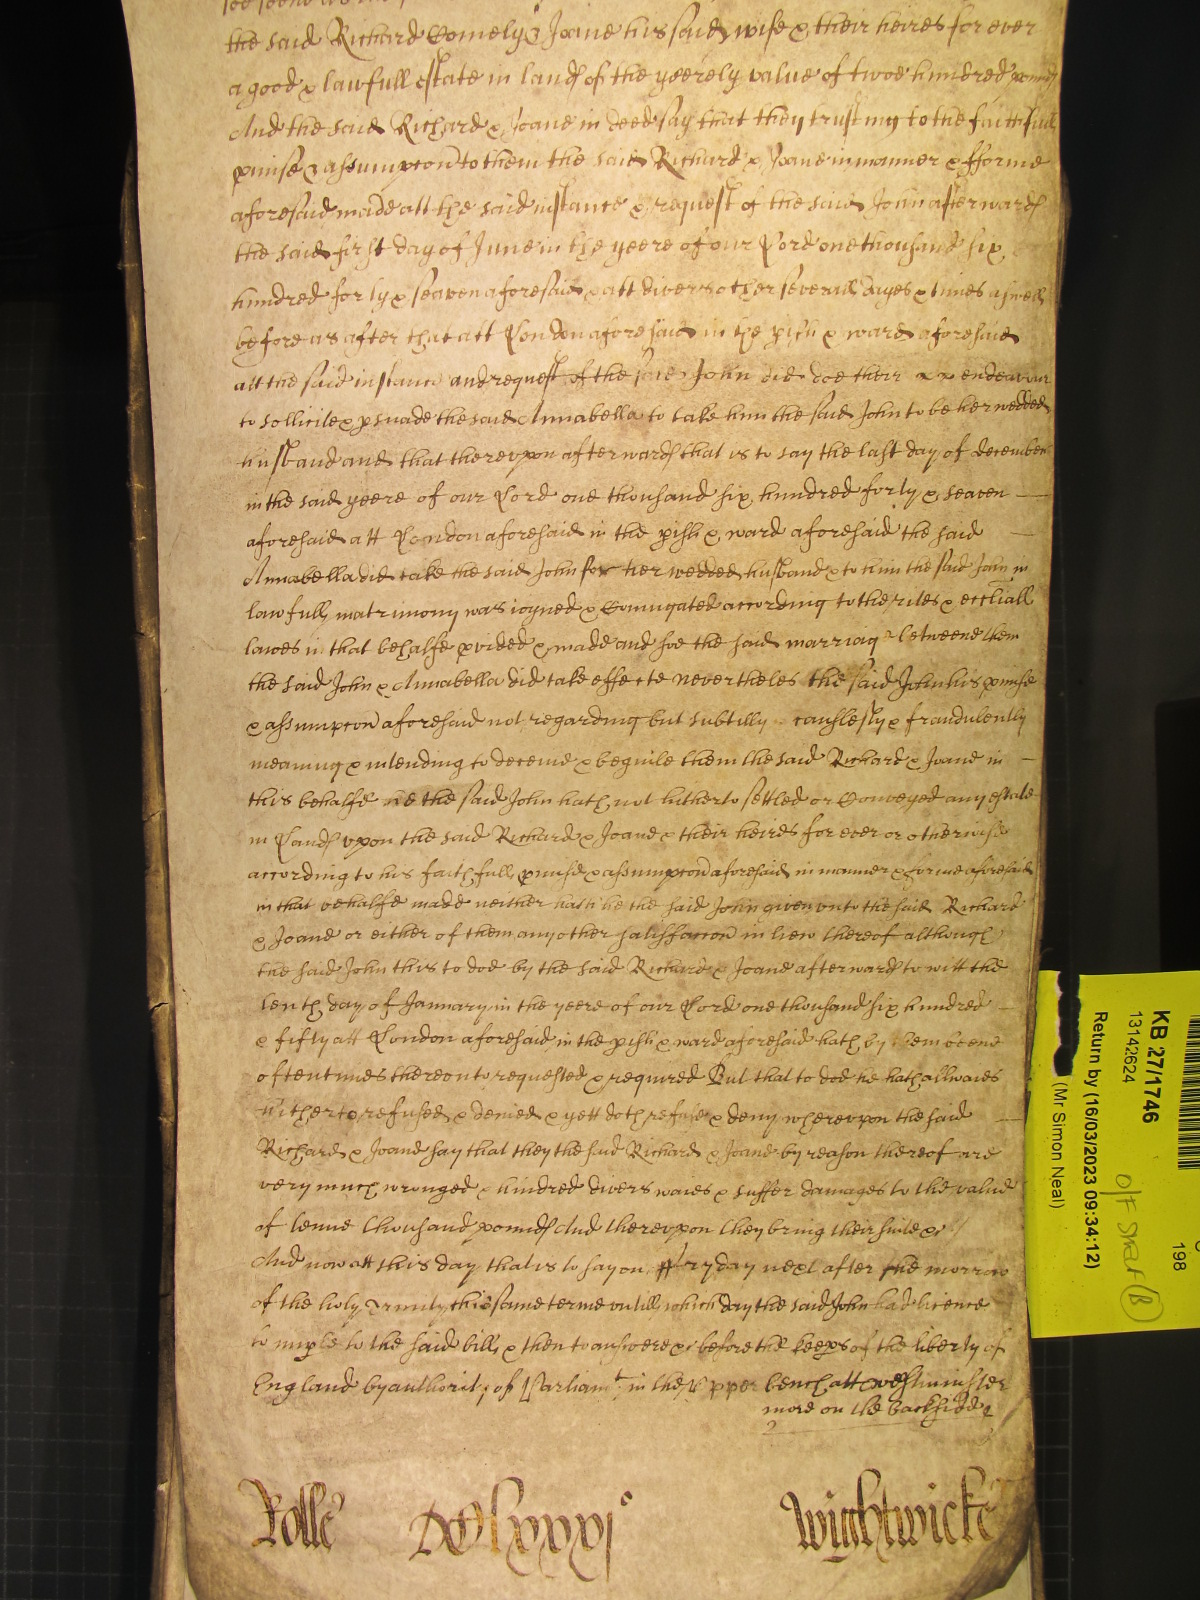 the said Richard Comely & Joane his said wife & their heires for ever
a good & lawfull estate in lands of the yeerely value of twoe hundred pounds
And the said Richard & Joane in deed say that they trusting to the faithfull
pmise & assumpcon to them the said Richard & Joane in manner & fforme
aforesaid made att the said instance & request of the said John afterwards
the said first day of June in the yeere of our Lord one thousand six
hundred forty & seaven aforesaid & att divers other severall dayes & times aswell
before as after that att London aforesaid in the pish & ward aforesaid
att the said instance and request of the said John did doe their endeavour
to sollicite & pswade the said Annabella to take him the said John to be her wedded
husband and that therevpon afterwards that is to say the last day of december
in the said yeere of our Lord one thousand six hundred forty & seaven
aforesaid att London aforesaid in the pish & ward aforesaid the said
Annabella did take the said John for her wedded husband & to him the said John in
lawfull matrimony was ioyned & Coniugated according to the rites & eccliall
lawes in that behalfe pvided & made and soe the said marriage betweene them
the said John & Annabella did take effecte neverthelės the said John his pmise
& assumpcon aforesaid not regarding but subtilly & fraudulently
meaning & intending to deceive & beguile them the said Richard & Joane in
this behalfe he the said John hath not hitherto settled or Conveyed any estate
in Lands vpon the said Richard & Joane & their heires for ever or otherwise
according to his faithfull pmise & assumpcon aforesaid in manner & forme aforesaid
in that behalfe made neither hath he the said John given vnto the said Richard
& Joane or either of them any other satisfaccon in liew thereof although
the said John this to doe by the said Richard & Joane afterwards to witt the
tenth day of January in the yeere of our Lord one thousand six hundred
& fifty att London aforesaid in the pish & ward aforesaid hath by them beene
oftentimes thereonto requested & required But that to doe he hath allwaies
hitherto refused & denied & yett doth refuse & deny wherevpon the said
Richard & Joane say that they the said Richard & Joane by reason thereof are
very much wronged & hindred divers waies & suffer damages to the value
of tenne thousand pounds And therevpon they bring their suite &c
And now att this day that is to say on ffryday next after the morrow
of the holy Trinity this same terme vntill which day the said John had licence
to imple to the said bill & then to answere &c before the keeps of the liberty of
England by authority of Parliamt in the Vpper bench att Westminster
more on the backside
Rolle Dclxxxjo Wightwicke
KB 27/1746
13142624
Return by (16/03/2023 09:34:12)
(Mr Simon Neal)
198